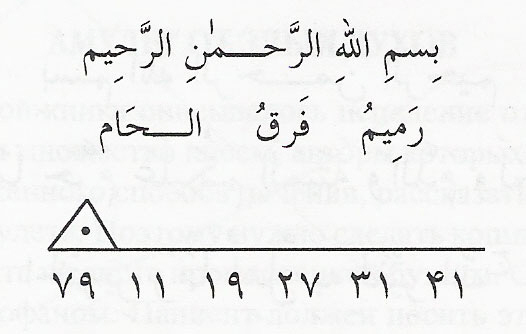 بِسمِ اللهِ الرَّحـــمٰنِ الرَّحِيمِ
رَمِيمُ فَرقُ الـــحَام
٧٩ ١١ ١٩ ٢٧ ٣١ ٤١